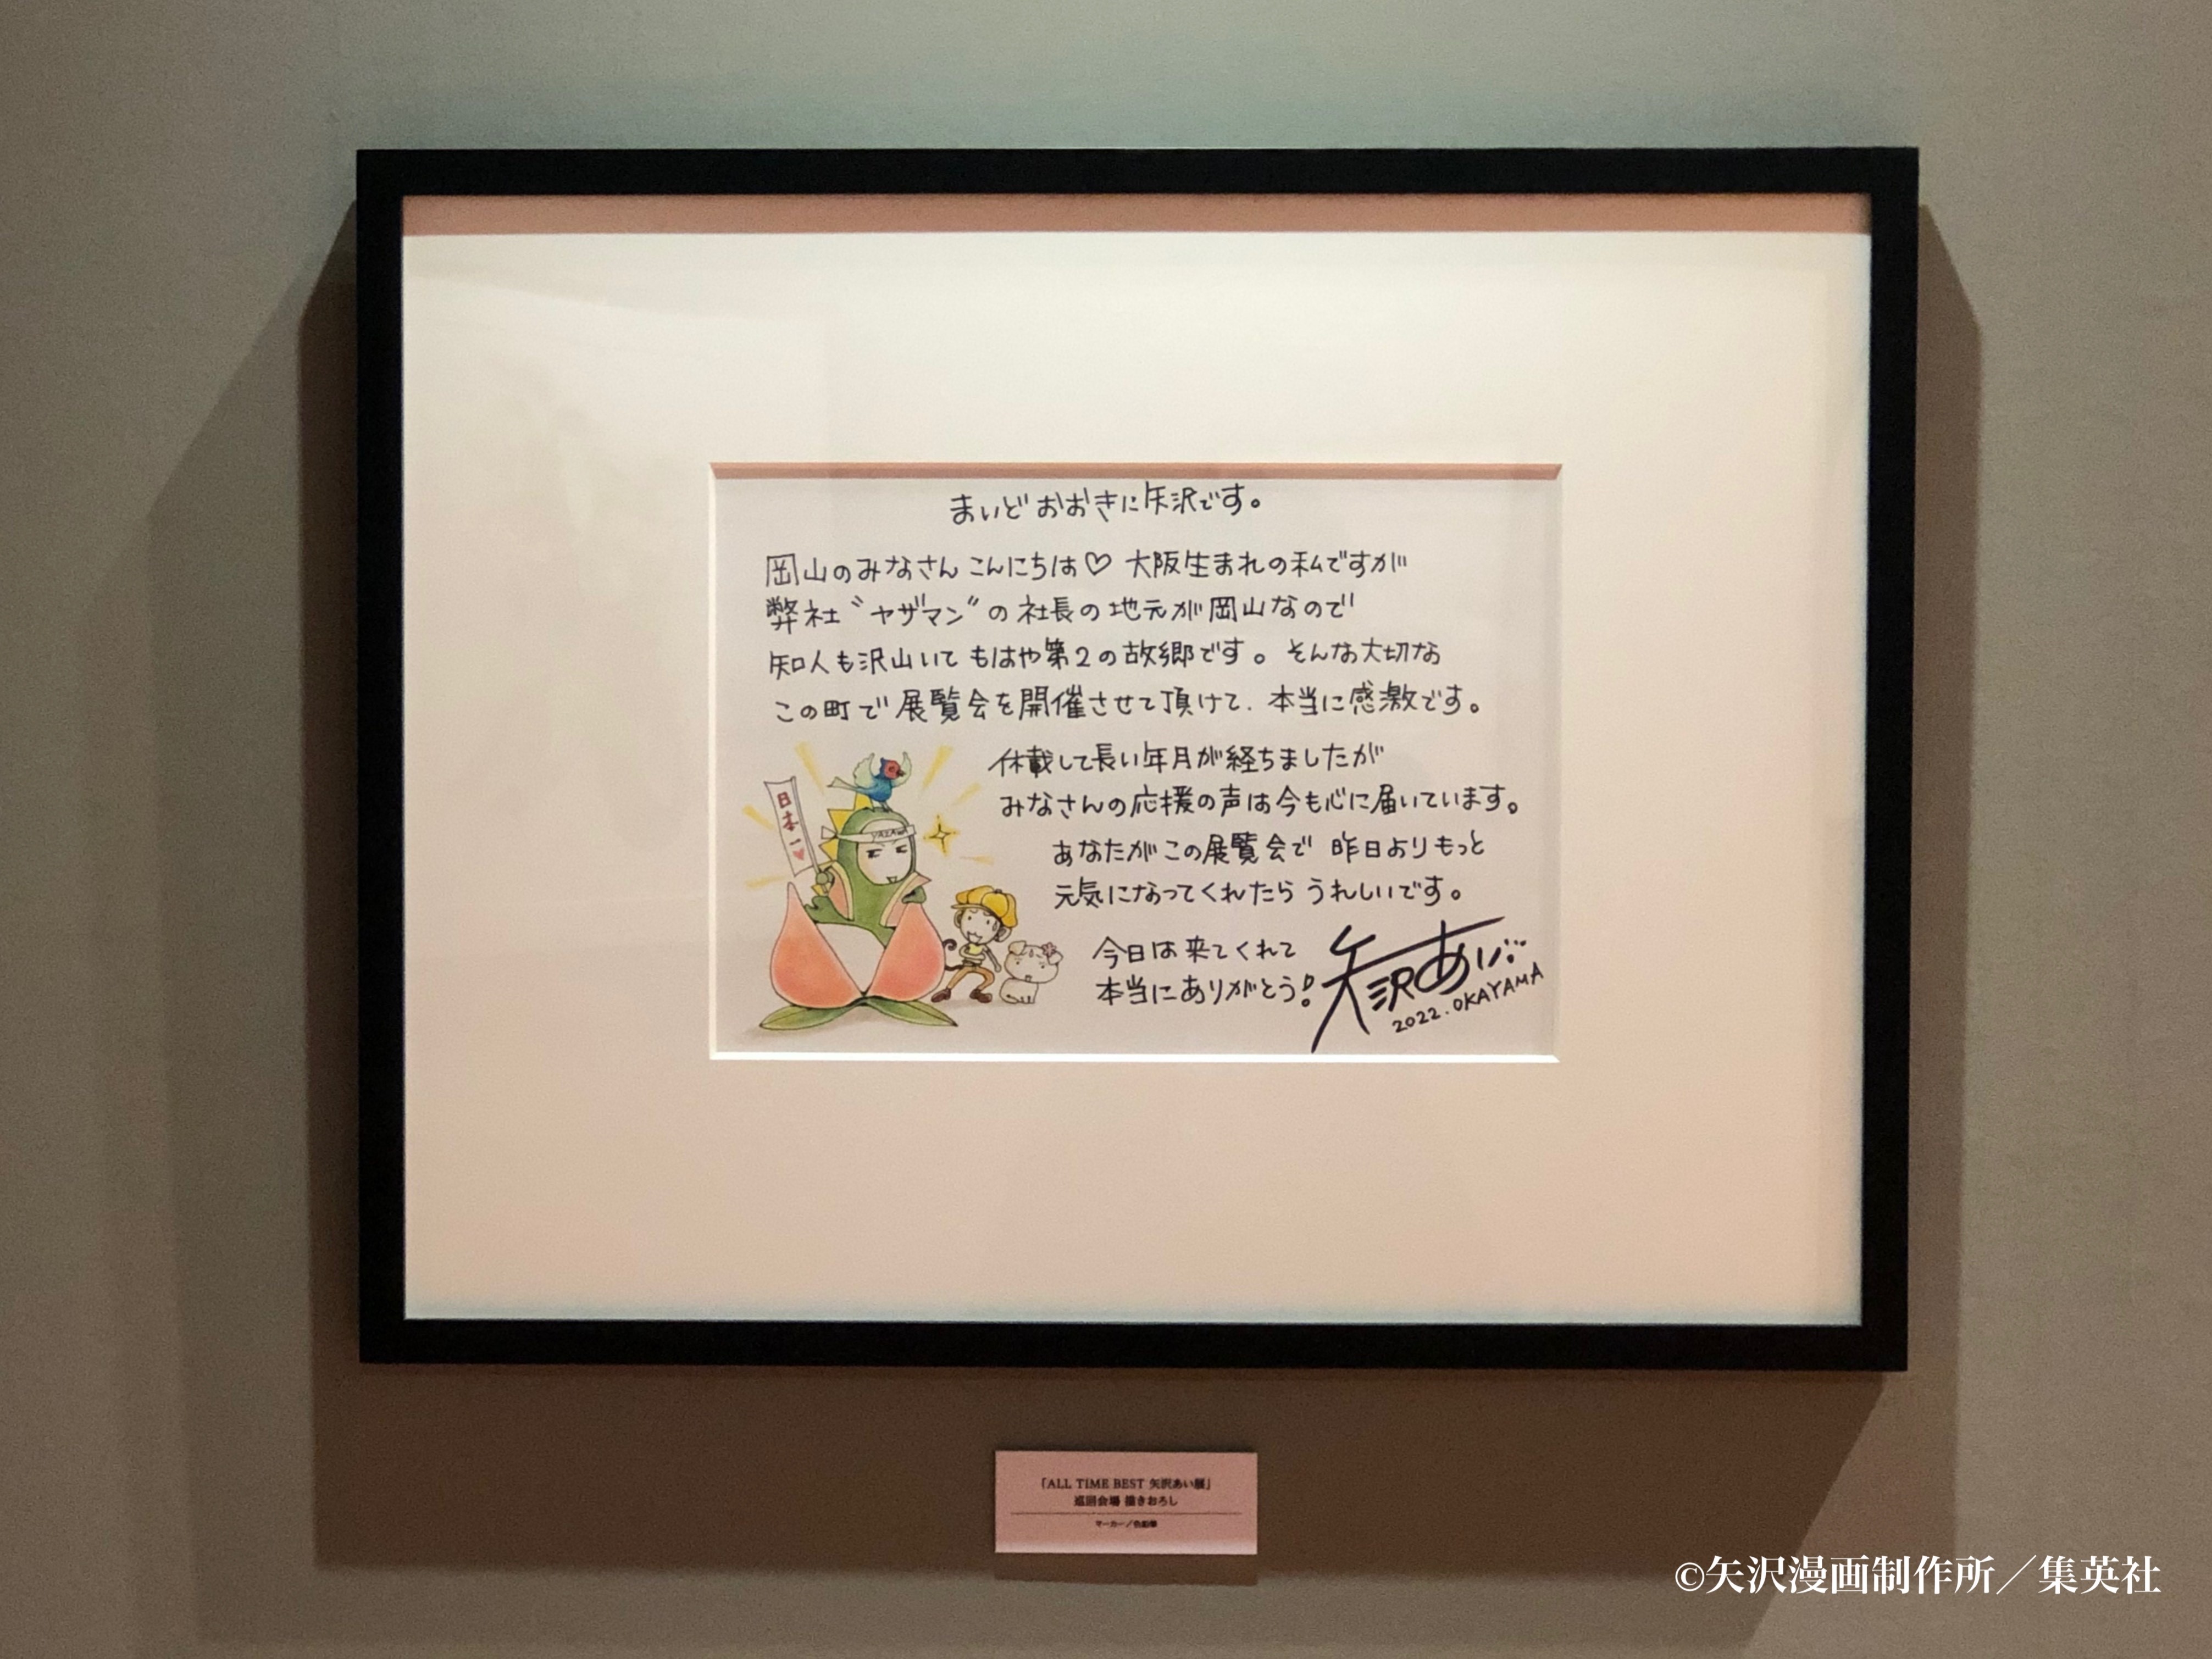 まいどおおきに矢沢です。
岡山のみなさんこんにちは♡ 大阪生まれの私ですが
弊社〝ヤザマン〟の社長の地元が岡山なので
知人も沢山いてもはや第2の故郷です。そんな大切な
この町で展覧会を開催させて頂けて、本当に感激です。
休載して長い年月が経ちましたが
みなさんの応援の声は今も心に届いています。
あなたがこの展覧会で 昨日よりもっと
元気になってくれたら うれしいです。
今日は来てくれて
本当にありがとう!
矢沢あい
2022.OKAYAMA
日本一♥
YAZAWA
「ALL TIME BEST 矢沢あい展」
巡回会場 描きおろし
マーカー/色鉛筆
©矢沢漫画制作所/集英社